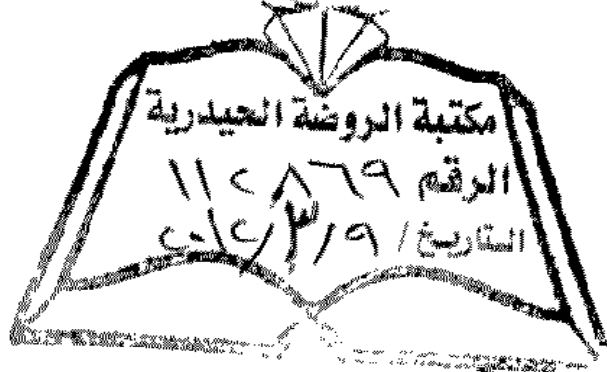 مكتبة الروضة الحيدرية
الرقم ١١٢٨٦٩
التاريخ / ٩/٣/٢٠١٢